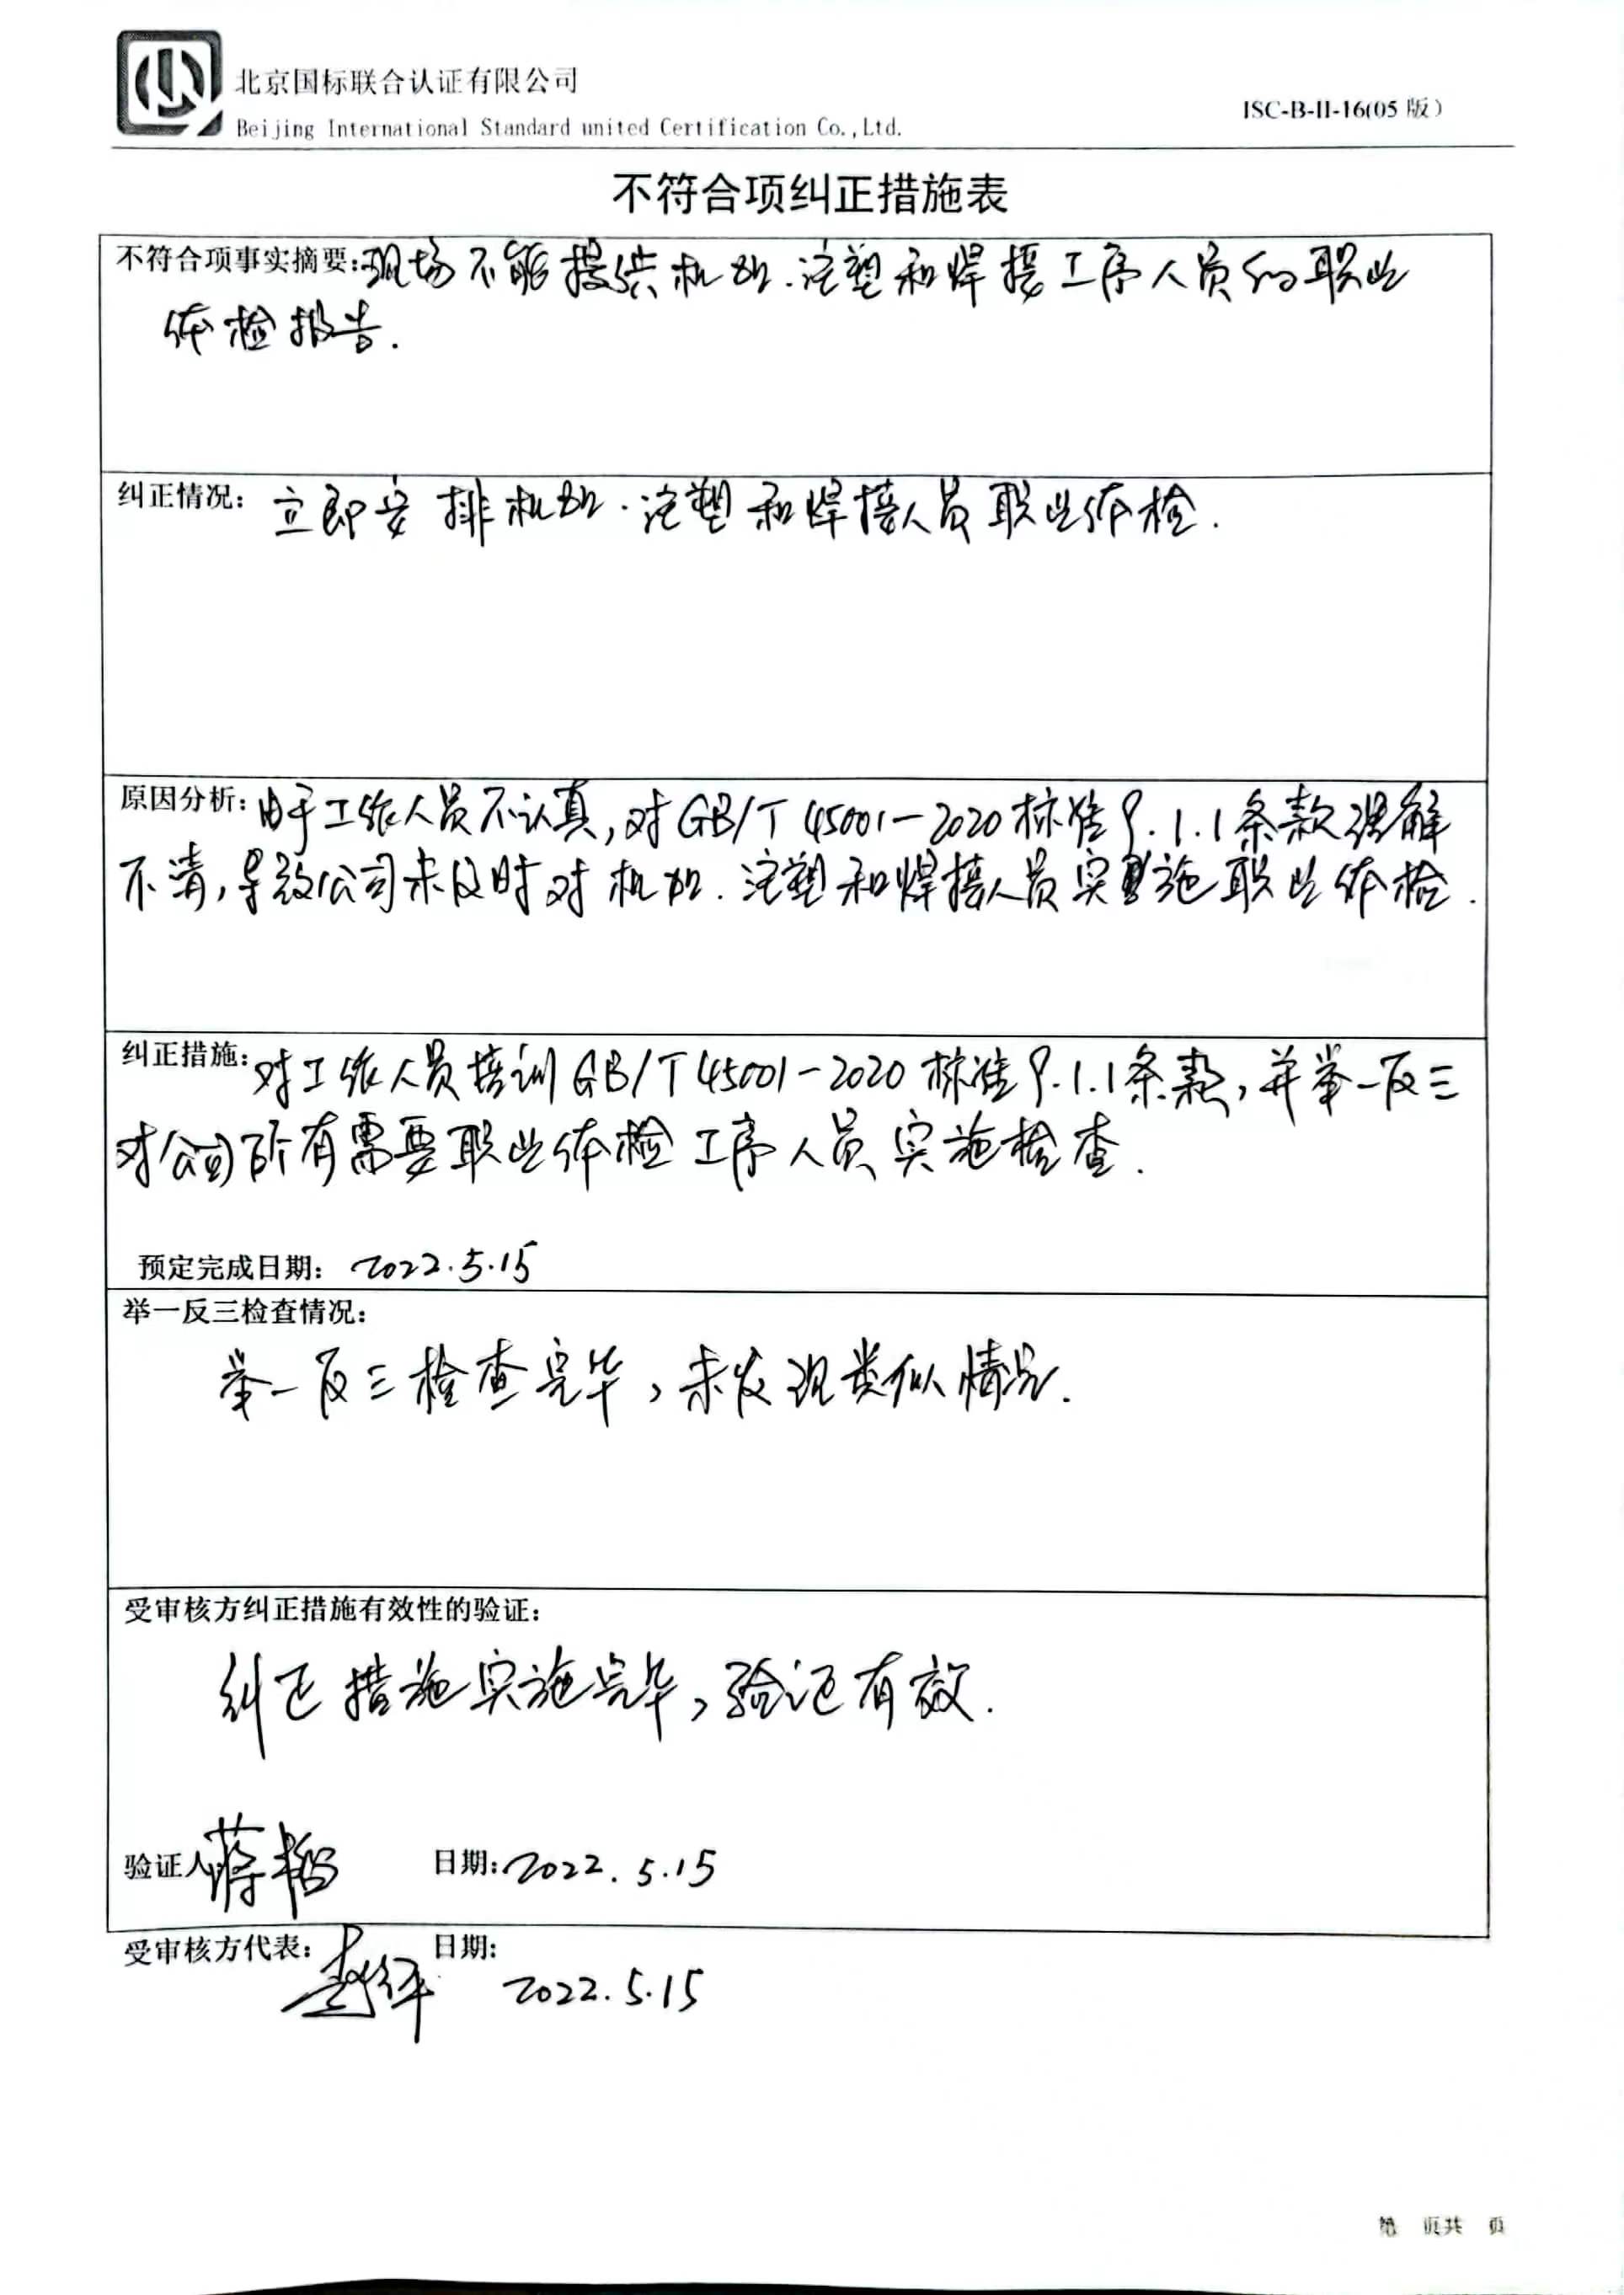 北京国标联合认证有限公司
Beijing International Standard united Certification Co.,Ltd.
ISC-B-II-16(05 版)
不符合项纠正措施表
不符合项事实摘要:现场不能提供机加.注塑和焊接工序人员的职业
体检报告.
纠正情况: 立即安排机加.注塑和焊接人员职业体检.
原因分析:由于工作人员不认真,对GB/T 45001-2020标准9.1.1条款理解
不清,导致公司未及时对机加.注塑和焊接人员实施职业体检.
纠正措施:对工作人员培训GB/T45001-2020标准9.1.1条款,并举一反三
对公司所有需要职业体检工序人员实施检查.
预定完成日期: 2022.5.15
举一反三检查情况:
举一反三检查完毕,未发现类似情况.
受审核方纠正措施有效性的验证:
纠正措施实施完毕,验证有效.
验证人 日期:2022.5.15
受审核方代表: 日期:
2022.5.15
第 页共 页